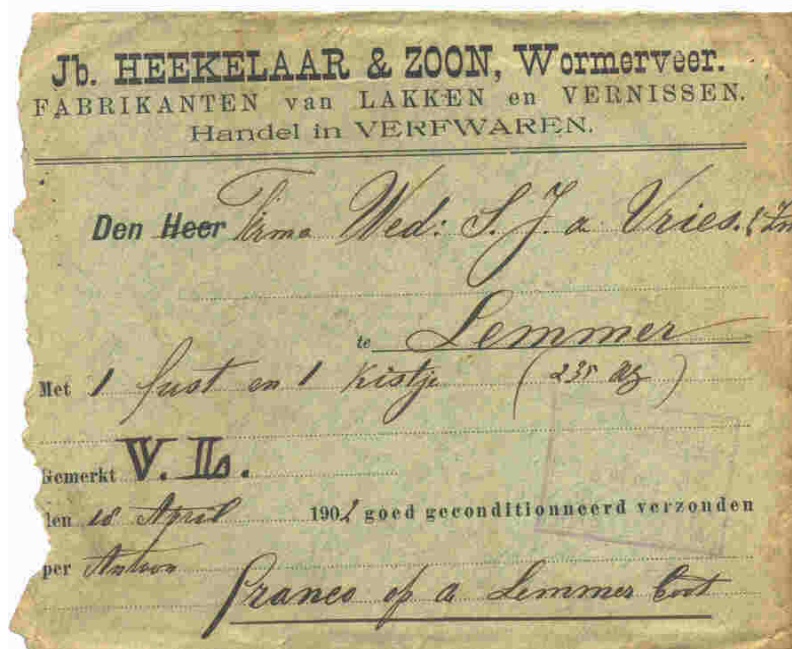 Jb. HEEKELAAR & ZOON, Wormerveer.
FABRIKANTEN van LAKKEN en VERNISSEN.
Handel in VERFWAREN.
Den Heer Firma Wed: S. J. d Vries. & Zn
te Lemmer
Met 1 fust en 1 Kistje (235 )
Gemerkt V. L.
den 18 April 1902 goed geconditionneerd verzonden
per
franco op d Lemmer boot